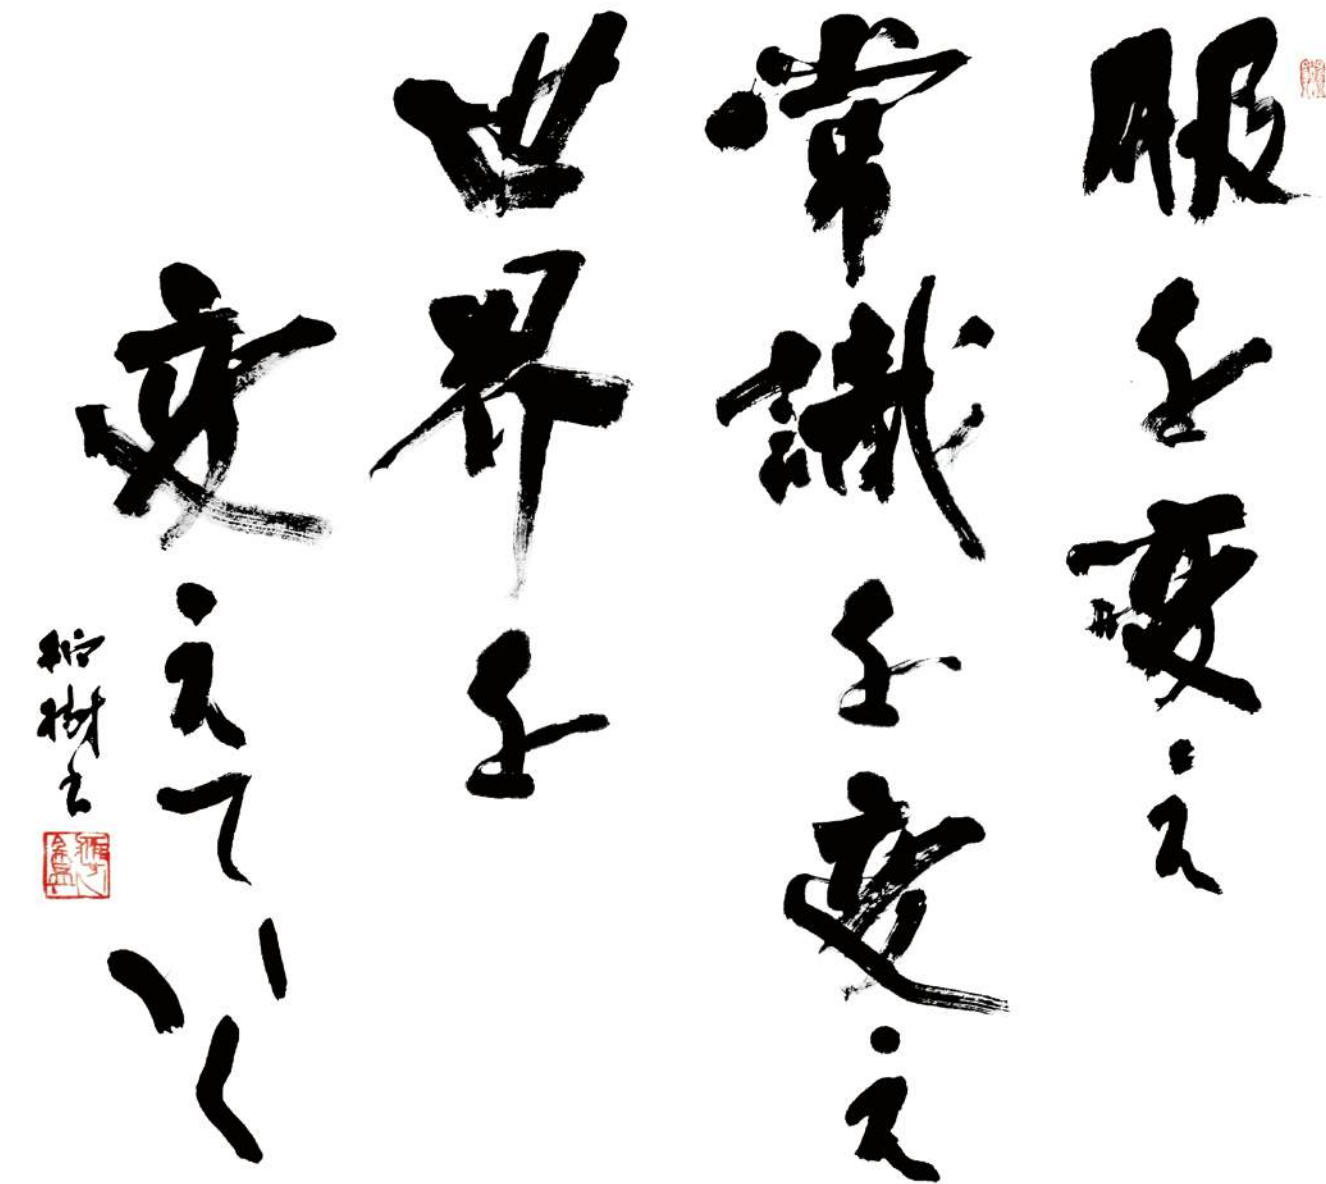 服を変え
常識を変え
世界を
変えていく